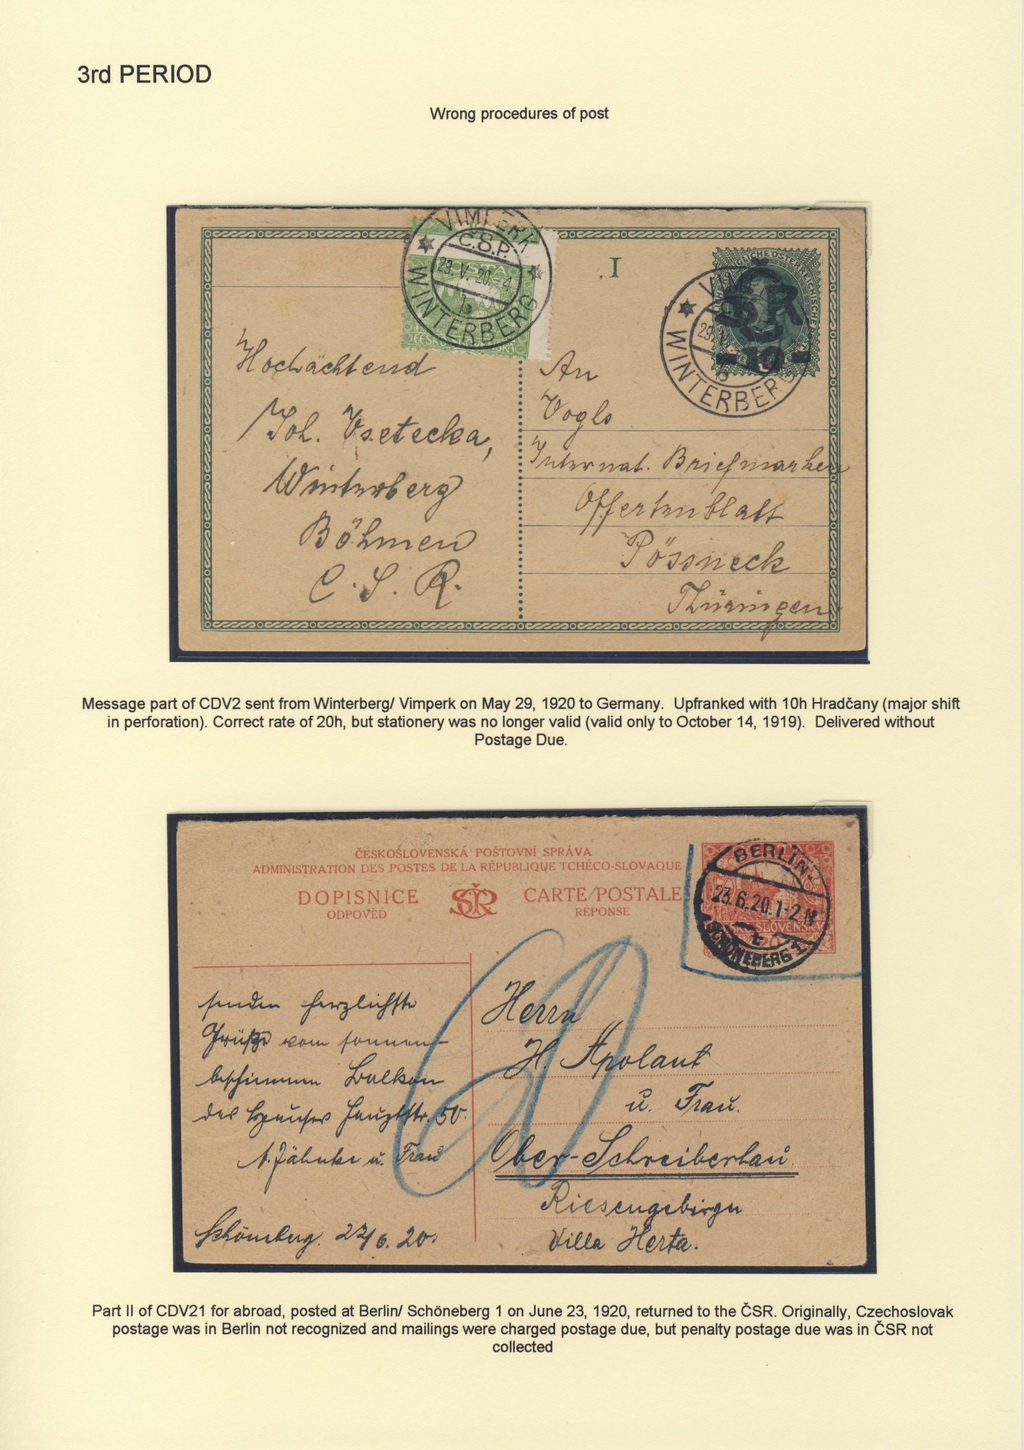 3rd PERIOD
Wrong procedures of post
VIMPERK
Č.S.P.
29. V. 20. - 4
1a
WINTERBERG
ČESKO SLOVENSKÁ
I
VIMPERK
29. V.
WINTERBERG
ČSR
- 10 -
Hochachtend
Joh. Vsetecka,
Winterberg
Böhmen
C. S. R.
An
Vogls
Internat. Briefmarken
Offertenblatt
Pössneck
Thüringen
Message part of CDV2 sent from Winterberg/ Vimperk on May 29, 1920 to Germany. Upfranked with 10h Hradčany (major shift
in perforation). Correct rate of 20h, but stationery was no longer valid (valid only to October 14, 1919). Delivered without
Postage Due.
ČESKOSLOVENSKÁ POŠTOVNÍ SPRÁVA
ADMINISTRATION DES POSTES DE LA RÉPUBLIQUE TCHÉCO-SLOVAQUE
DOPISNICE ČSR CARTE POSTALE
ODPOVĚĎ RÉPONSE
BERLIN-
23.6.20.1-2N
SCHÖNEBERG 1.
senden herzlichste
Grüße vom sonnen-
beschienenen Balkon
des Hauses Hauptstr. 50.
A. Jähnke u. Frau
Schöneberg. 22/6. 20.
Herrn
H. Apolant
u. Frau.
Ober-Schreiberhau
Riesengebirge
Villa Herta.
Part II of CDV21 for abroad, posted at Berlin/ Schöneberg 1 on June 23, 1920, returned to the ČSR. Originally, Czechoslovak
postage was in Berlin not recognized and mailings were charged postage due, but penalty postage due was in ČSR not
collected